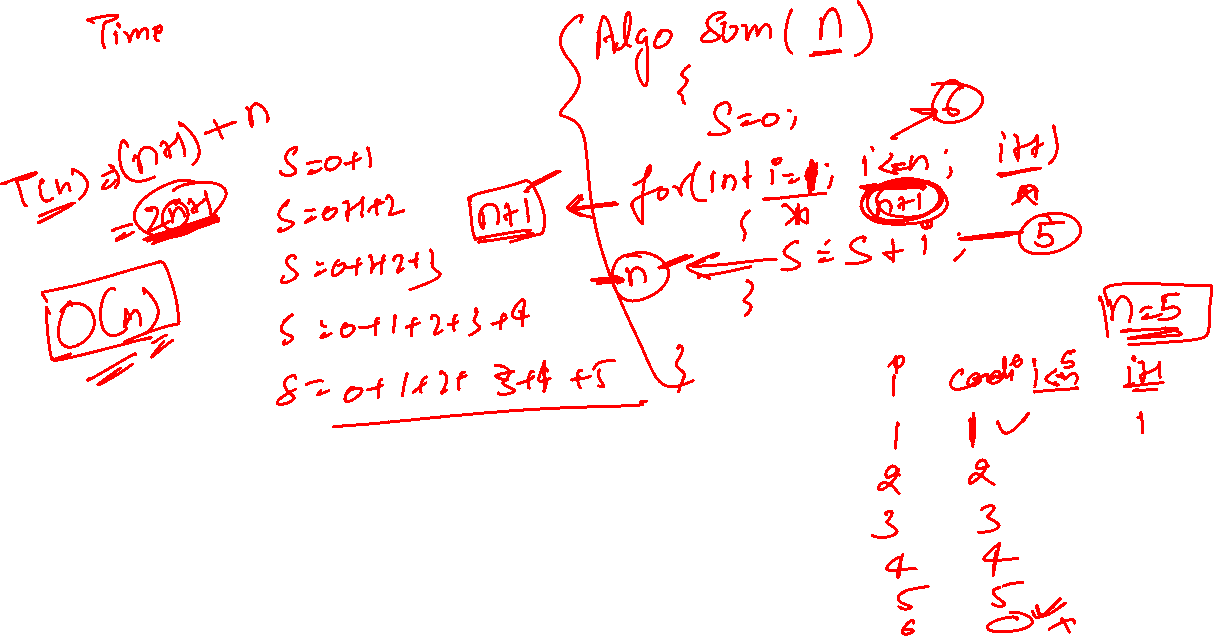 Time
T(n) = (n+1) + n
= 2n+1
O(n)
S=0+1
S=0+1+2
S=0+1+2+3
S=0+1+2+3+4
S=0+1+2+3+4+5
Algo Sum(n)
{
S=0;
6
n+1
for(int i=1; i<=n; i++)
n+1
{
n
S=S+i;
5
}
}
n=5
i condi i<=n 5 i++
1 1 1
2 2
3 3
4 4
5 5
6